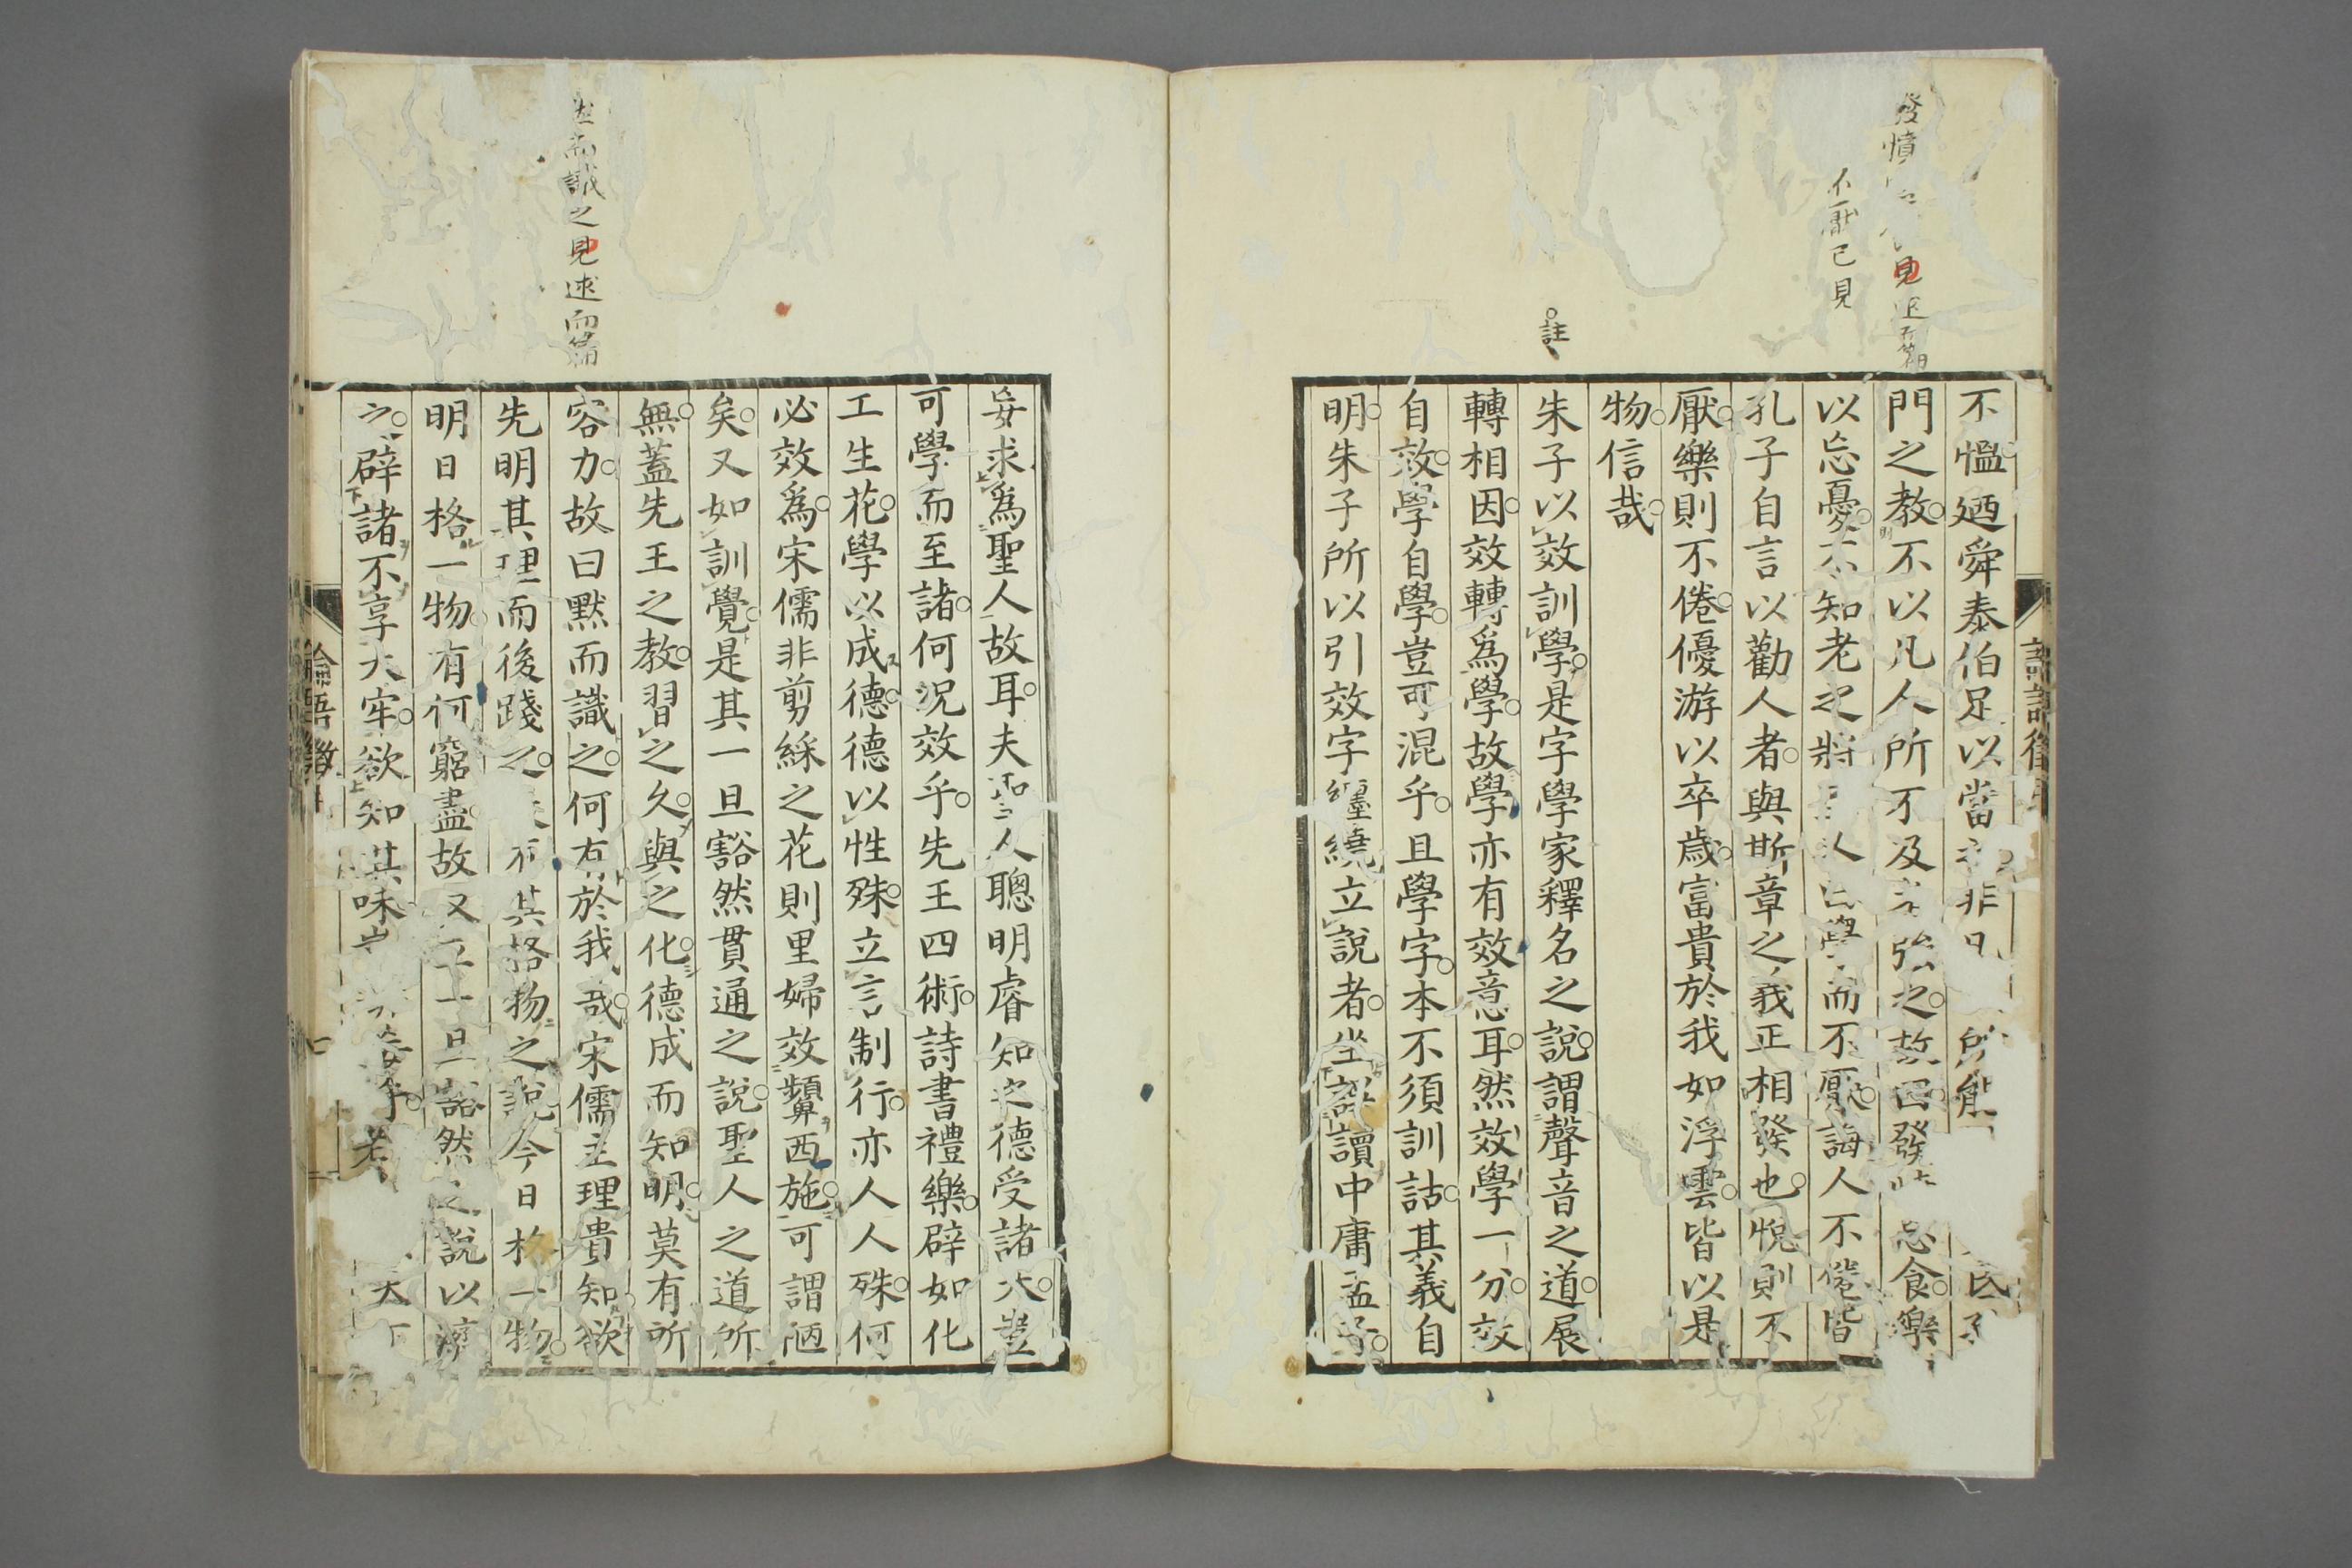 發憤
見述而篇
不厭已見
註
不慍廼舜泰伯足以當
非凡
所能
門之教不以凡人所不及
強之故曰發憤忘食樂
以忘憂不知老之將
人曰學而不厭誨人不倦皆
孔子自言以勸人者與斯章之義正相發也悅則不
厭樂則不倦優游以卒歲富貴於我如浮雲皆以是
物信哉
朱子以效訓學是字學家釋名之說謂聲音之道展
轉相因效轉爲學故學亦有效意耳然效學一分效
自效學自學豈可混乎且學字本不須訓詁其義自
明朱子所以引效字纏繞立說者坐誤讀中庸孟子
而識之見述而篇
妄求爲聖人故耳夫聖人聰明睿知之德受諸天豈
可學而至諸何況效乎先王四術詩書禮樂辟如化
工生花學以成德德以性殊立言制行亦人人殊何
必效爲宋儒非剪綵之花則里婦效顰西施可謂陋
矣又如訓覺是其一旦豁然貫通之說聖人之道所
無蓋先王之教習之久與之化德成而知明莫有所
容力故曰默而識之何有於我哉宋儒主理貴知欲
先明其理而後踐之
其格物之說今日格一物
明日格一物有何窮盡故又
一旦豁然之說以濟
之辟諸不享大牢欲知其味
論語徵